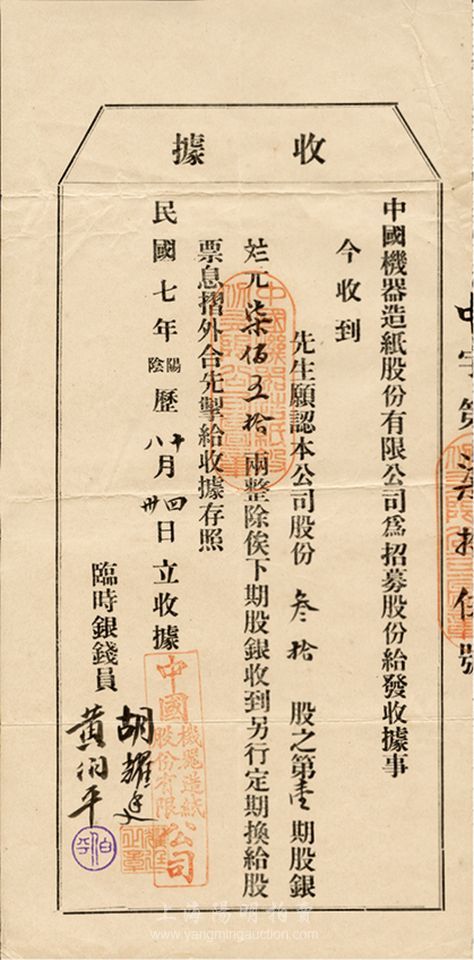 收據
中字第
號
中國機器造紙股份有限公司爲招募股份給發收據事
今收到
先生願認本公司股份 叁拾 股之第壹期股銀
元柒佰五拾兩整除俟下期股銀收到另行定期換給股
票息摺外合先掣給收據存照
民國七年陽陰歷十八月四卅日立收據
臨時銀錢員
胡耀廷
黃伯平
中國機器造紙股份有限公司
伯平
上海陽明拍賣
www.yangmingauction.com